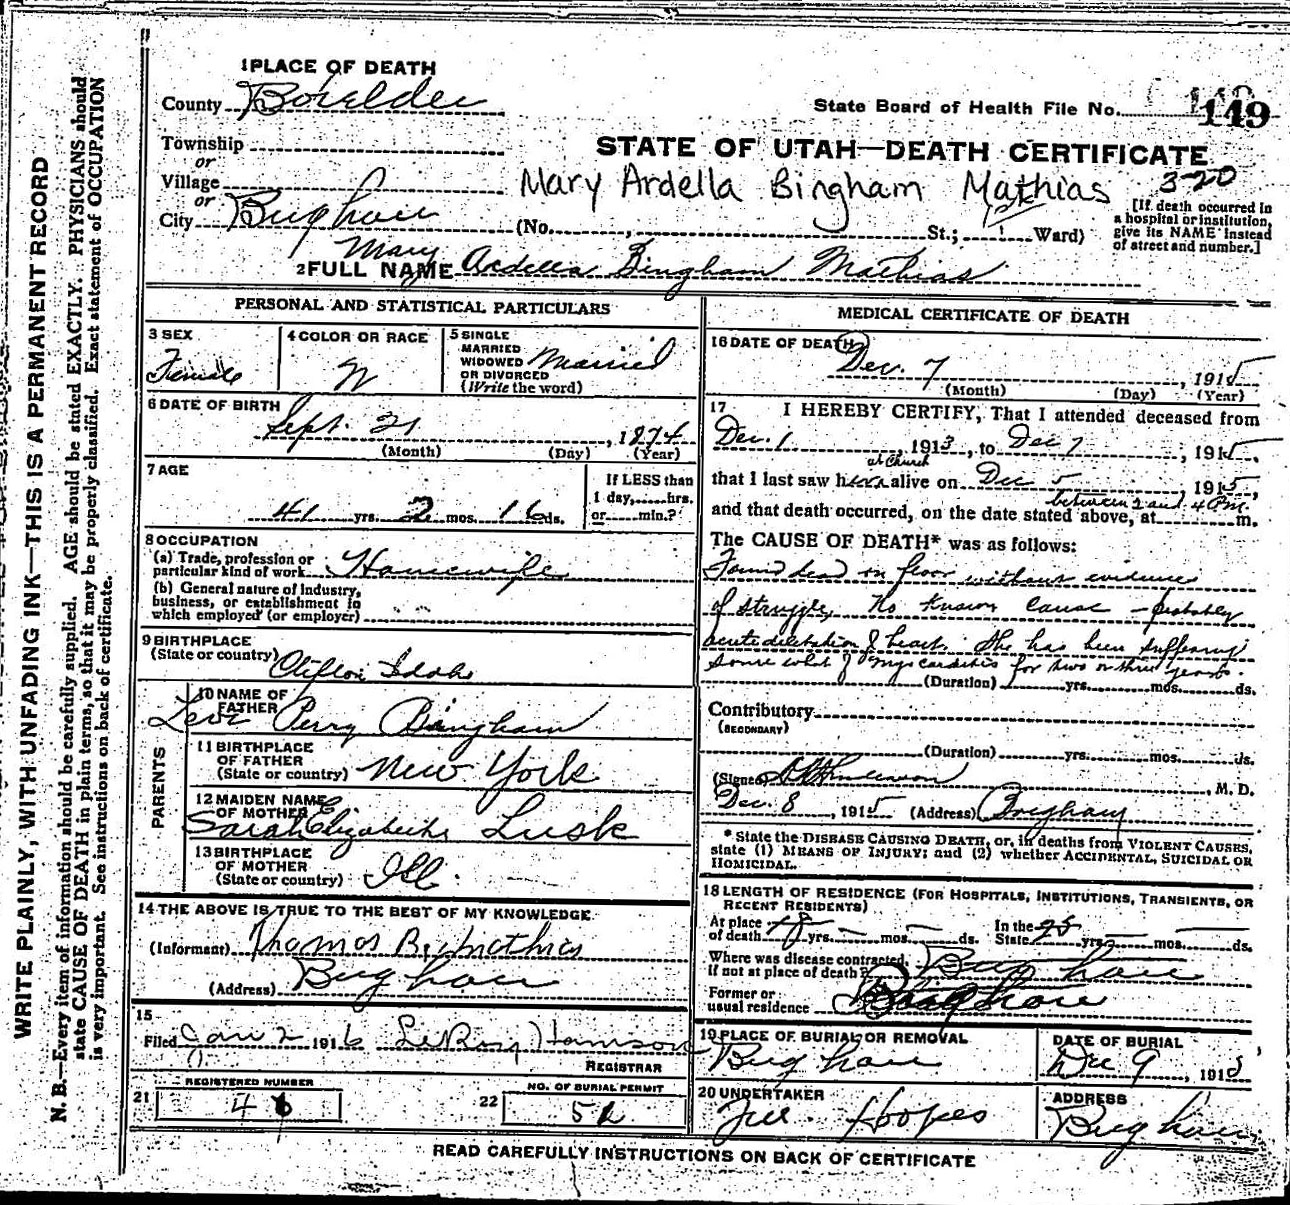 WRITE PLAINLY, WITH UNFADING INK—THIS IS A PERMANENT RECORD
N. B.—Every item of information should be carefully supplied. AGE should be stated EXACTLY. PHYSICIANS should
state CAUSE OF DEATH in plain terms, so that it may be properly classified. Exact statement of OCCUPATION
is very important. See instructions on back of certificate.
1 PLACE OF DEATH
County Boxelder
State Board of Health File No. 149
Township
or
Village
or
City Brigham
STATE OF UTAH—DEATH CERTIFICATE
Mary Ardella Bingham Mathias 3-20
(No. , St.; 1 Ward)
[If death occurred in
a hospital or institution,
give its NAME instead
of street and number.]
2 FULL NAME Mary Ardella Bingham Mathias
PERSONAL AND STATISTICAL PARTICULARS
3 SEX
Female
4 COLOR OR RACE
W
5 SINGLE
MARRIED
WIDOWED
OR DIVORCED
(Write the word)
Married
6 DATE OF BIRTH
Sept. 21, 1874
(Month) (Day) (Year)
7 AGE
41 yrs. 2 mos. 16 ds.
If LESS than
1 day, hrs.
or min.?
8 OCCUPATION
(a) Trade, profession or
particular kind of work Housewife
(b) General nature of industry,
business, or establishment in
which employed (or employer)
9 BIRTHPLACE
(State or country) Clifton Idaho
PARENTS
10 NAME OF
FATHER
Levi Perry Bingham
11 BIRTHPLACE
OF FATHER
(State or country) New York
12 MAIDEN NAME
OF MOTHER
Sarah Elizabeth Lusk
13 BIRTHPLACE
OF MOTHER
(State or country) Ill.
14 THE ABOVE IS TRUE TO THE BEST OF MY KNOWLEDGE
(Informant) Thomas B. Mathias
(Address) Brigham
15
Filed Jan 2 1916 LeRoy Harrison
REGISTRAR
21 REGISTERED NUMBER
22 NO. OF BURIAL PERMIT
MEDICAL CERTIFICATE OF DEATH
16 DATE OF DEATH
Dec. 7, 1915
(Month) (Day) (Year)
17 I HEREBY CERTIFY, That I attended deceased from
Dec. 1, 1913, to Dec 7, 1915,
at Church
that I last saw her alive on Dec 5 1915,
between 2 and 4 P.M.
and that death occurred, on the date stated above, at m.
The CAUSE OF DEATH* was as follows:
Found dead on floor without evidence
of struggle, No known cause — probably
acute dilatation of heart. She has been suffering
some what of myocarditis for two or three years.
(Duration) yrs. mos. ds.
Contributory
(SECONDARY)
(Duration) yrs. mos. ds.
(Signed) M. D.
Dec. 8, 1915 (Address) Brigham
* State the DISEASE CAUSING DEATH, or, in deaths from VIOLENT CAUSES,
state (1) MEANS OF INJURY; and (2) whether ACCIDENTAL, SUICIDAL OR
HOMICIDAL.
18 LENGTH OF RESIDENCE (FOR HOSPITALS, INSTITUTIONS, TRANSIENTS, OR
RECENT RESIDENTS)
At place
of death 18 yrs. — mos. — ds.
In the
State yrs. — mos. — ds.
Where was disease contracted,
if not at place of death? Brigham
Former or
usual residence Brigham
19 PLACE OF BURIAL OR REMOVAL
Brigham
DATE OF BURIAL
Dec 9, 1915
20 UNDERTAKER
Hoopes
ADDRESS
Brigham
READ CAREFULLY INSTRUCTIONS ON BACK OF CERTIFICATE